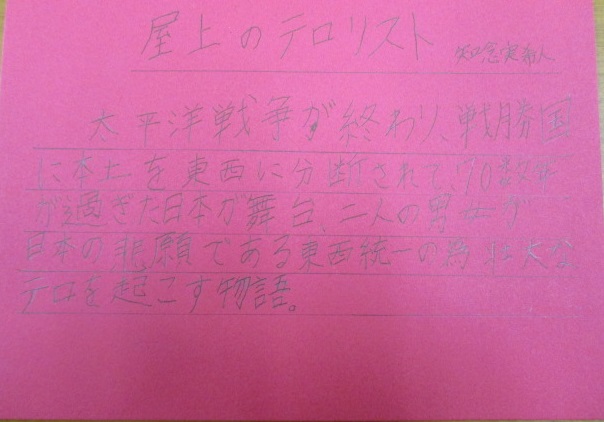 屋上のテロリスト 知念実希人
太平洋戦争が終わり、戦勝国
に本土を東西に分断されて、70数年
が過ぎた日本が舞台、二人の男女が
日本の悲願である東西統一の為壮大な
テロを起こす物語。